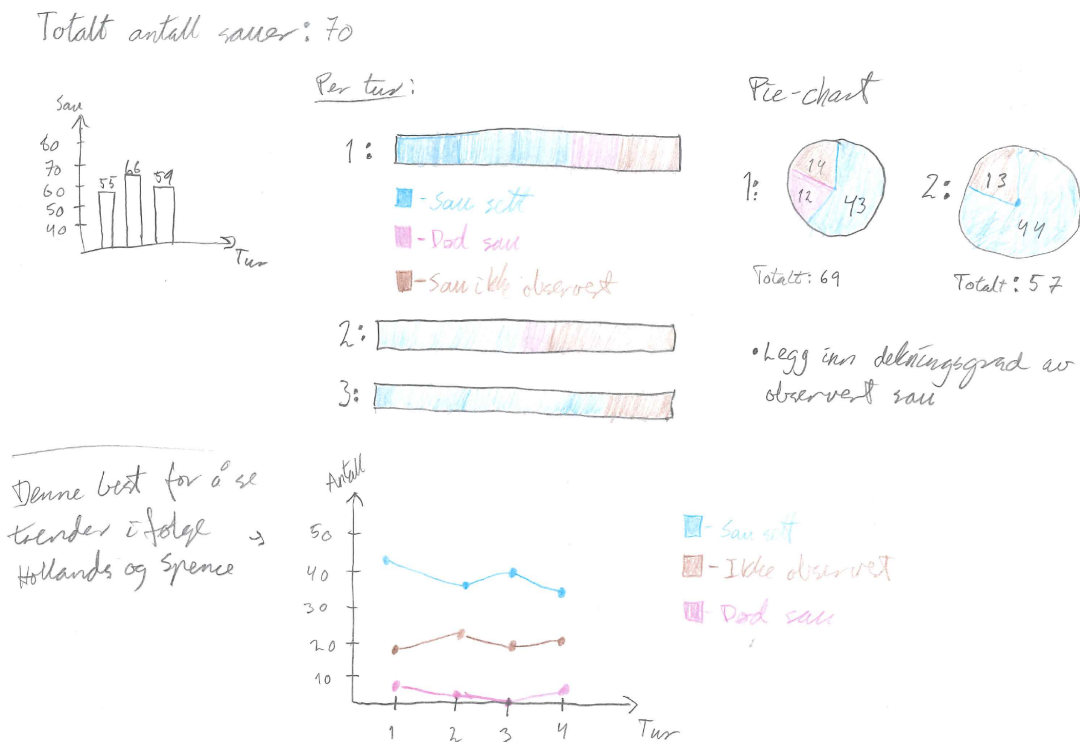 Totalt antall sauer: 70
Sau
80
70
60
50
40
55
66
59
Tur
Per tur:
1:
- Sau sett
- Død sau
- Sau ikke observert
2:
3:
Pie-chart
1:
14
12
43
Totalt: 69
2:
13
44
Totalt: 57
• Legg inn dekningsgrad av
observert sau
Denne best for å se
trender ifølge →
Hollands og Spence
Antall
50
40
30
20
10
1 2 3 4
Tur
- Sau sett
- Ikke observert
- Død sau